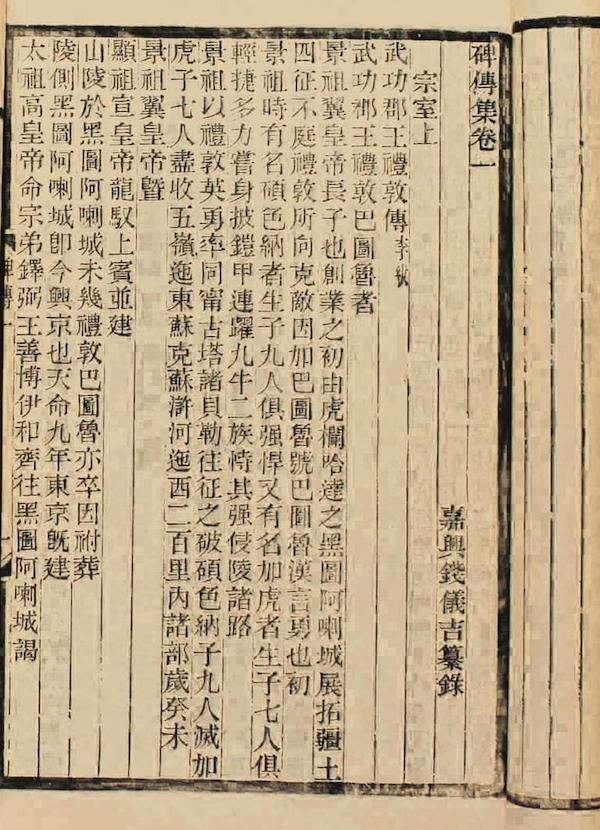 碑傳集卷一
嘉興錢儀吉纂錄
宗室上
武功郡王禮敦傳 李紱
武功郡王禮敦巴圖魯者
景祖翼皇帝長子也創業之初由虎欄哈達之黑圖阿喇城展拓疆土
四征不庭禮敦所向克敵因加巴圖魯號巴圖魯漢言勇也初
景祖時有名碩色納者生子九人俱强悍又有名加虎者生子七人俱
輕捷多力嘗身披鎧甲連躍九牛二族恃其强侵陵諸路
景祖以禮敦英勇率同甯古塔諸貝勒往征之破碩色納子九人滅加
虎子七人盡收五嶺迤東蘇克蘇滸河迤西二百里內諸部歲癸未
景祖翼皇帝曁
顯祖宣皇帝龍馭上賓並建
山陵於黑圖阿喇城未幾禮敦巴圖魯亦卒因祔葬
陵側黑圖阿喇城卽今興京也天命九年東京旣建
太祖高皇帝命宗弟鐸弼王善博伊和齊往黑圖阿喇城謁
碑傳一
一